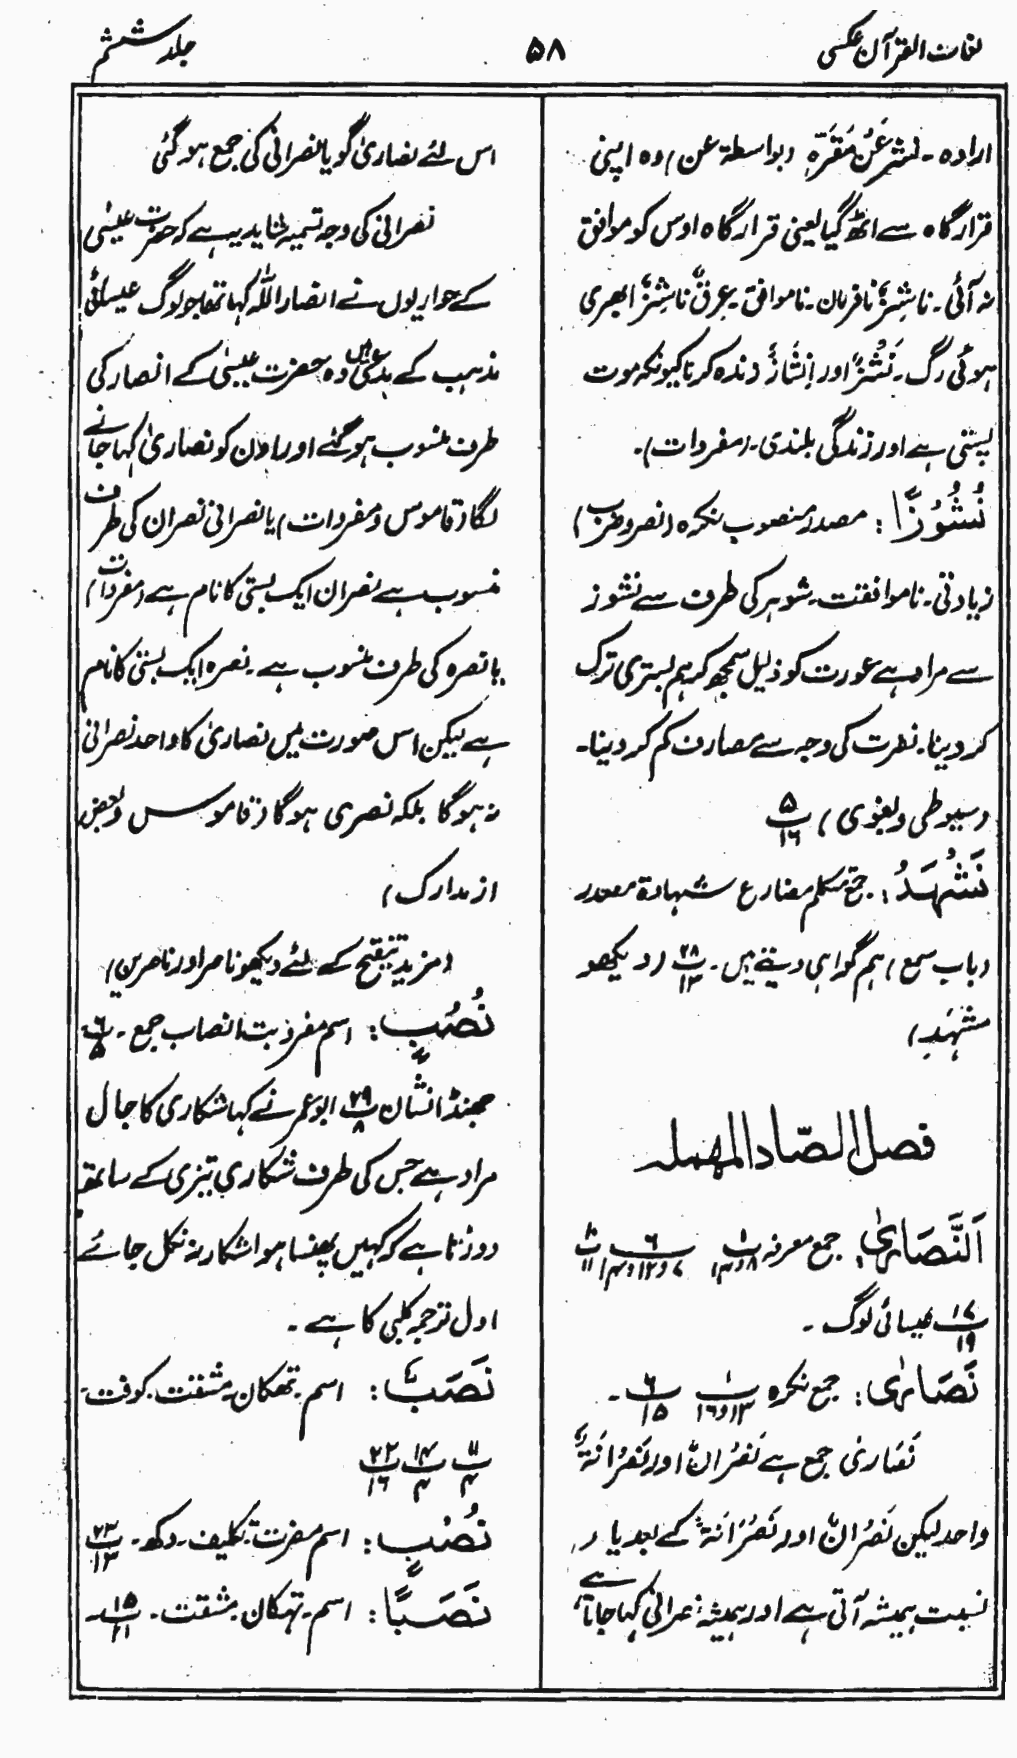 لغات القرآن عکسی
۵۸
جلد ششم
ارادہ۔ نشز عَنْ مَقَرِّہٖ (بواسطۃ عن) وہ اپنی
قرارگاہ سے اٹھ گیا یعنی قرارگاہ اوس کو موافق
نہ آئی۔ ناشِزٌ نافرمان۔ ناموافق۔ عِرقٌ ناشِزٌ ابھری
ہوئی رگ۔ نَشْزٌ اور اِنْشَازٌ زندہ کرنا کیونکہ موت
پستی ہے اور زندگی بلندی۔ (مفردات)۔
نُشُوْزًا: مصدر منصوب نکرہ (نصر وضرب)
زیادتی۔ ناموافقت۔ شوہر کی طرف سے نشوز
سے مراد ہے عورت کو ذلیل سمجھ کر ہم بستری ترک
کر دینا۔ نفرت کی وجہ سے مصارف کم کر دینا۔
(سیوطی وبغوی) ۵/۱۶
نَشْہَدُ: جمع متکلم مضارع شہادۃ مصدر
(باب سمع) ہم گواہی دیتے ہیں۔ ۲۸/۱۳ (دیکھو
مشہد)
فصل الصّاد المہملہ
اَلنَّصَارٰی: جمع معرفہ ۱/۸و۱۴ ۶/۷و۱۲و۱۴ ۱۰/۱۱
۱۷/۱۹ عیسائی لوگ۔
نَصَارٰی: جمع نکرہ ۱/۱۳و۱۶ ۶/۱۵۔
نَصَارٰی جمع ہے نَصْرَانٌ اور نَصْرَانَۃٌ
واحد لیکن نَصْرَانٌ اور نَصْرَانَۃٌ کے بعد یاء
نسبت ہمیشہ آتی ہے اور ہمیشہ نصرانی کہا جاتا ہے
اس لئے نصاریٰ گویا نصرانی کی جمع ہو گئی
نصرانی کی وجہ تسمیہ شاید یہ ہے کہ حضرت عیسیٰ
کے حواریوں نے انصار اللہ کہا تھا جو لوگ عیسائی
مذہب کے مدعی ہیں وہ حضرت عیسیٰ کے انصار کی
طرف منسوب ہو گئے اور اون کو نصاریٰ کہا جانے
لگا (قاموس ومفردات) یا نصرانی نصران کی طرف
منسوب ہے نصران ایک بستی کا نام ہے (مفردات)
یا نصرہ کی طرف منسوب ہے۔ نصرہ ایک بستی کا نام
ہے لیکن اس صورت میں نصاریٰ کا واحد نصرانی
نہ ہوگا بلکہ نصری ہوگا (قاموس وبعض
از مدارک)
(مزید تنقیح کے لئے دیکھو ناصر اور ناصرین)
نُصُبٍ: اسم مفرد بت۔ انصاب جمع۔ ۶/۵
جھنڈا نشان ۲۹/۸ ابو عمر نے کہا شکاری کا جال
مراد ہے جس کی طرف شکاری تیزی کے ساتھ
دوڑتا ہے کہ کہیں پھنسا ہوا شکار نہ نکل جائے
اول ترجمہ کلبی کا ہے۔
نَصَبٌ: اسم۔ تھکان۔ مشقت۔ کوفت۔
۱۱/۴ ۱۴/۴ ۲۲/۱۶
نُصْبٍ: اسم مضرت۔ تکلیف۔ دکھ۔ ۲۳/۱۳
نَصَبًا: اسم۔ تھکان۔ مشقت۔ ۱۵/۲۱